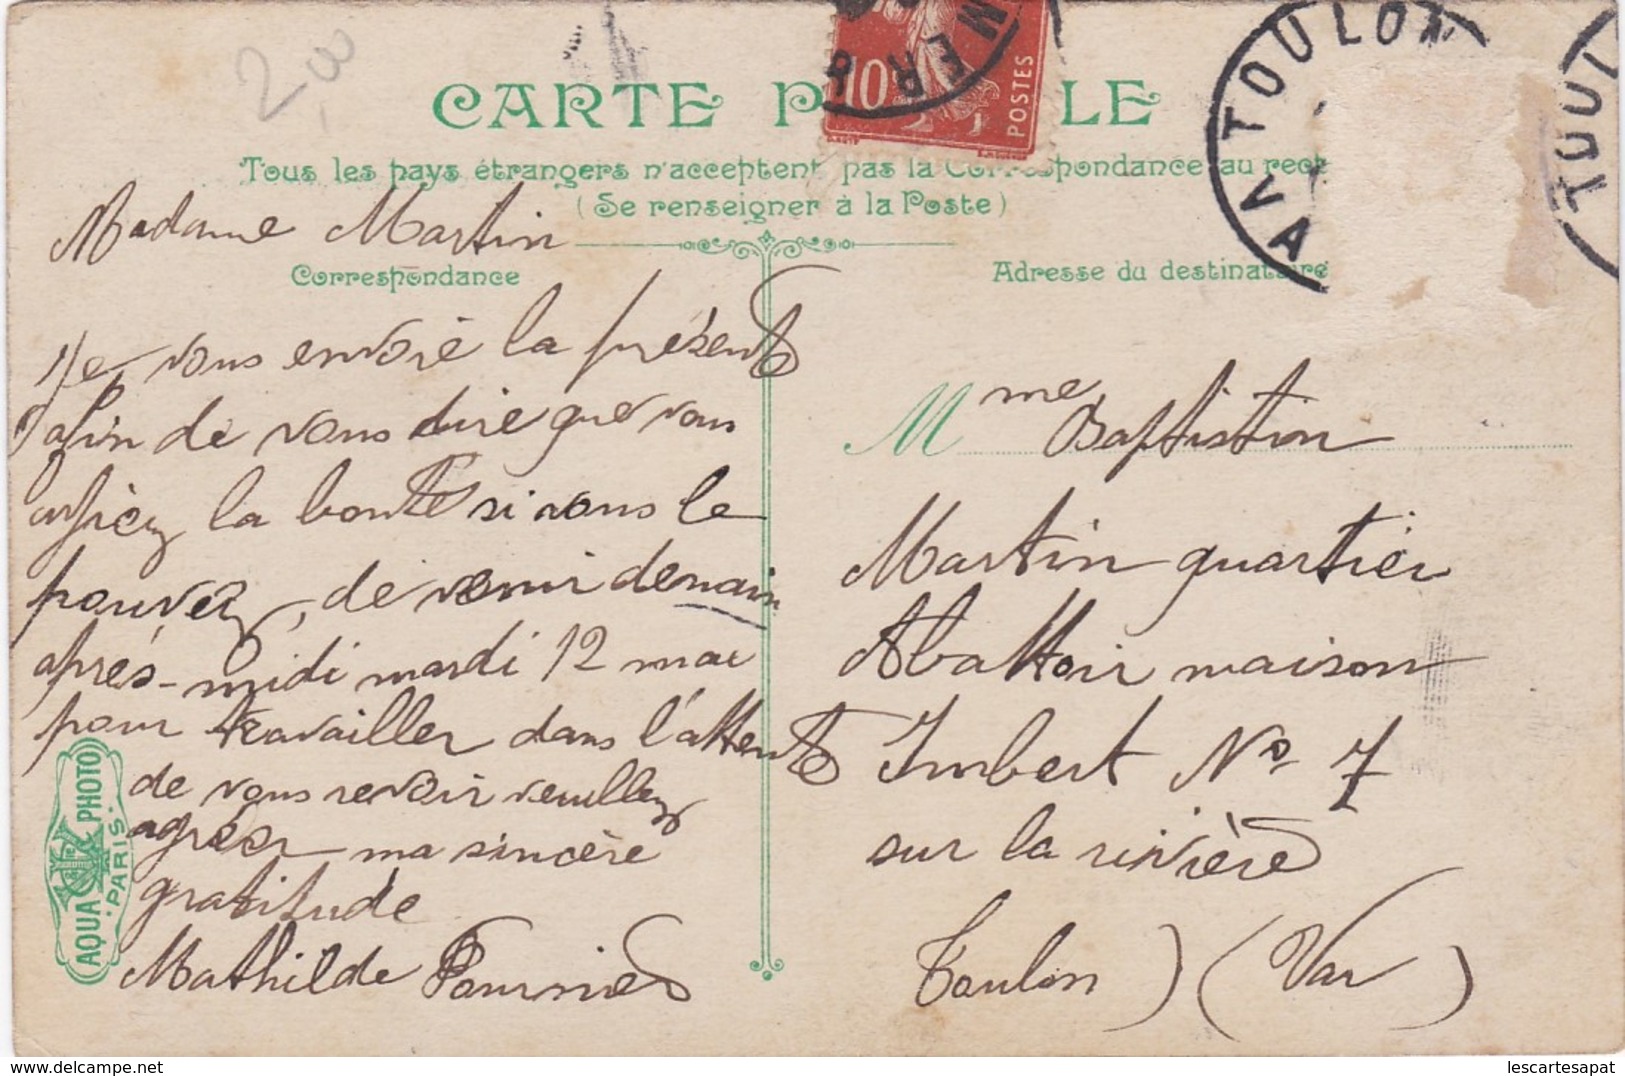 2,00
CARTE P LE
10c
POSTES
TOULON
VAR
TOUL
Tous les pays étrangers n'acceptent pas la Correspondance au rect
(Se renseigner à la Poste)
Correspondance
Adresse du destinataire
Madame Martin
Je vous envoie la présente
afin de vous dire que vous
la bonté si vous le
pouvez, de venir demain
après-midi mardi 12 mai
pour travailler dans l'attente
de vous revoir veuillez
agréer ma sincère
gratitude
Mathilde Fournier
AQUA PHOTO
PARIS
Mme Baptistin
Martin quartier
Abattoir maison
Imbert No 7
sur la rivière
Toulon) (Var)
delcampe.net
lescartesapat